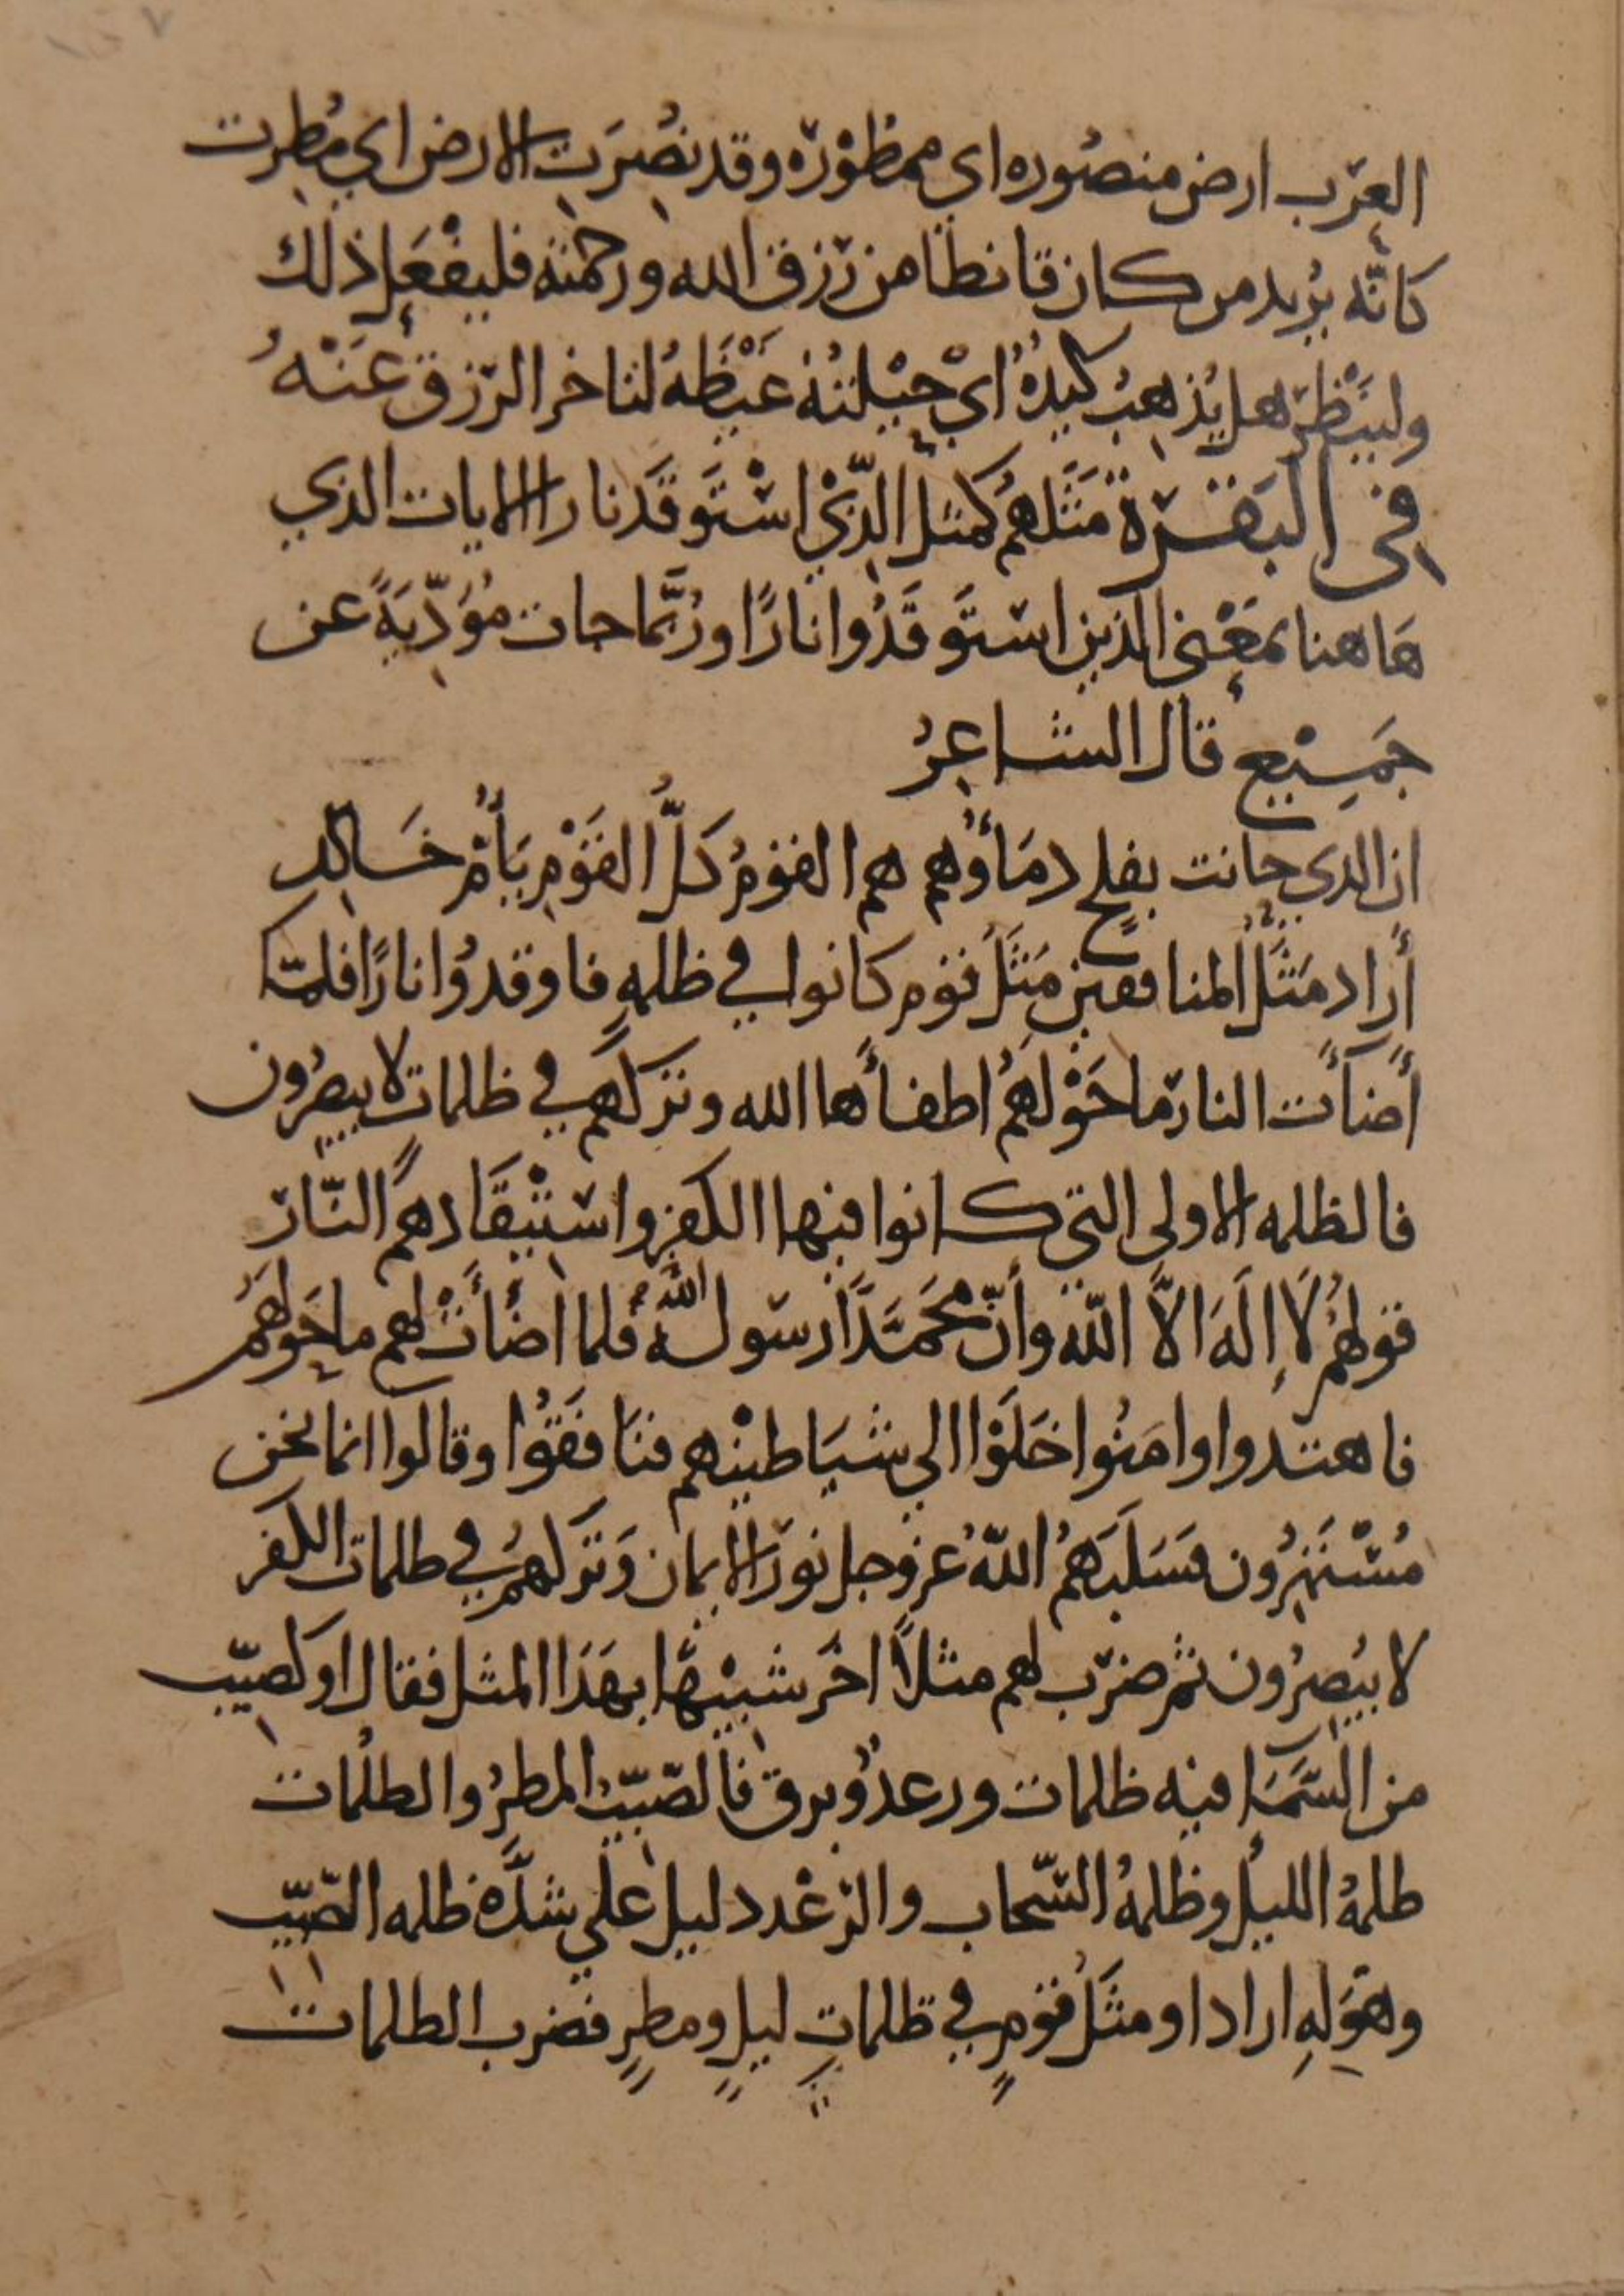 العرب ارض منصوره اى ممطورة وقد نُصِرَت الارض اي مُطِرت
كانّه يُريد من كان قانطا من رزق الله ورحمته فليفعل ذلك
ولينظر هل يُذهب كيدهُ اي حيلتهُ غَيْظَهُ لتاخر الرزق عَنْهُ
في البقرة مَثَلهم كمثل الّذي اسْتَوقَد نارا الايات الذي
هَاهنا بمعْنى الذين استوقَدُوا نارًا ورُبَّما جات مُؤَدّيَةً عن
جَمِيْع قال الشاعِرُ
ان الذي حانت بفلجٍ دمَاؤُهم هم القومُ كلُّ القَوْمِ يَا أُمَّ خَالدِ
أراد مَثَلُ المنافقين مَثَلُ قوم كانوا في ظلمهٍ فاوقدُوا نارًا فلمّا
أضأت النار ما حَوْلَهُم اطفأها الله وتركهم في ظلمات لا يبصرُون
فالظلمه الاولى التي كانوا فيها الكفر واسْتيْقَادهم النّار
قولهُم لَا إِلَهَ الاّ اللّه وأنّ محَمَّدًا رسول الله فلما اضأت لهم ما حَولهُم
فاهتدوا وامَنُوا خَلَوْا الي شيَاطينهم فنَافقُوا وقالوا انما نحن
مُسْتَهزِؤُن فسَلَبَهُمُ اللّهُ عز وجل نورَ الايمان وَتركهُم في ظلمات الكفر
لا يبُصِرُون ثم ضرَب لهم مثلاً اخَر شبيْهًا بهَذا المثل فقال او كصيّب
من السَّمَا فيه ظلمات ورعدٌ وبرق فالصّيّبُ المطرُ والظلُمات
ظلمهُ الليل وظلمهُ السّحاب والرّعْد دليل علي شدَّة ظلمه الصّيّب
وهَولهِ اراد او مثَلُ قومٍ في ظلماتِ ليلٍ ومطرٍ فضرب الظلمات